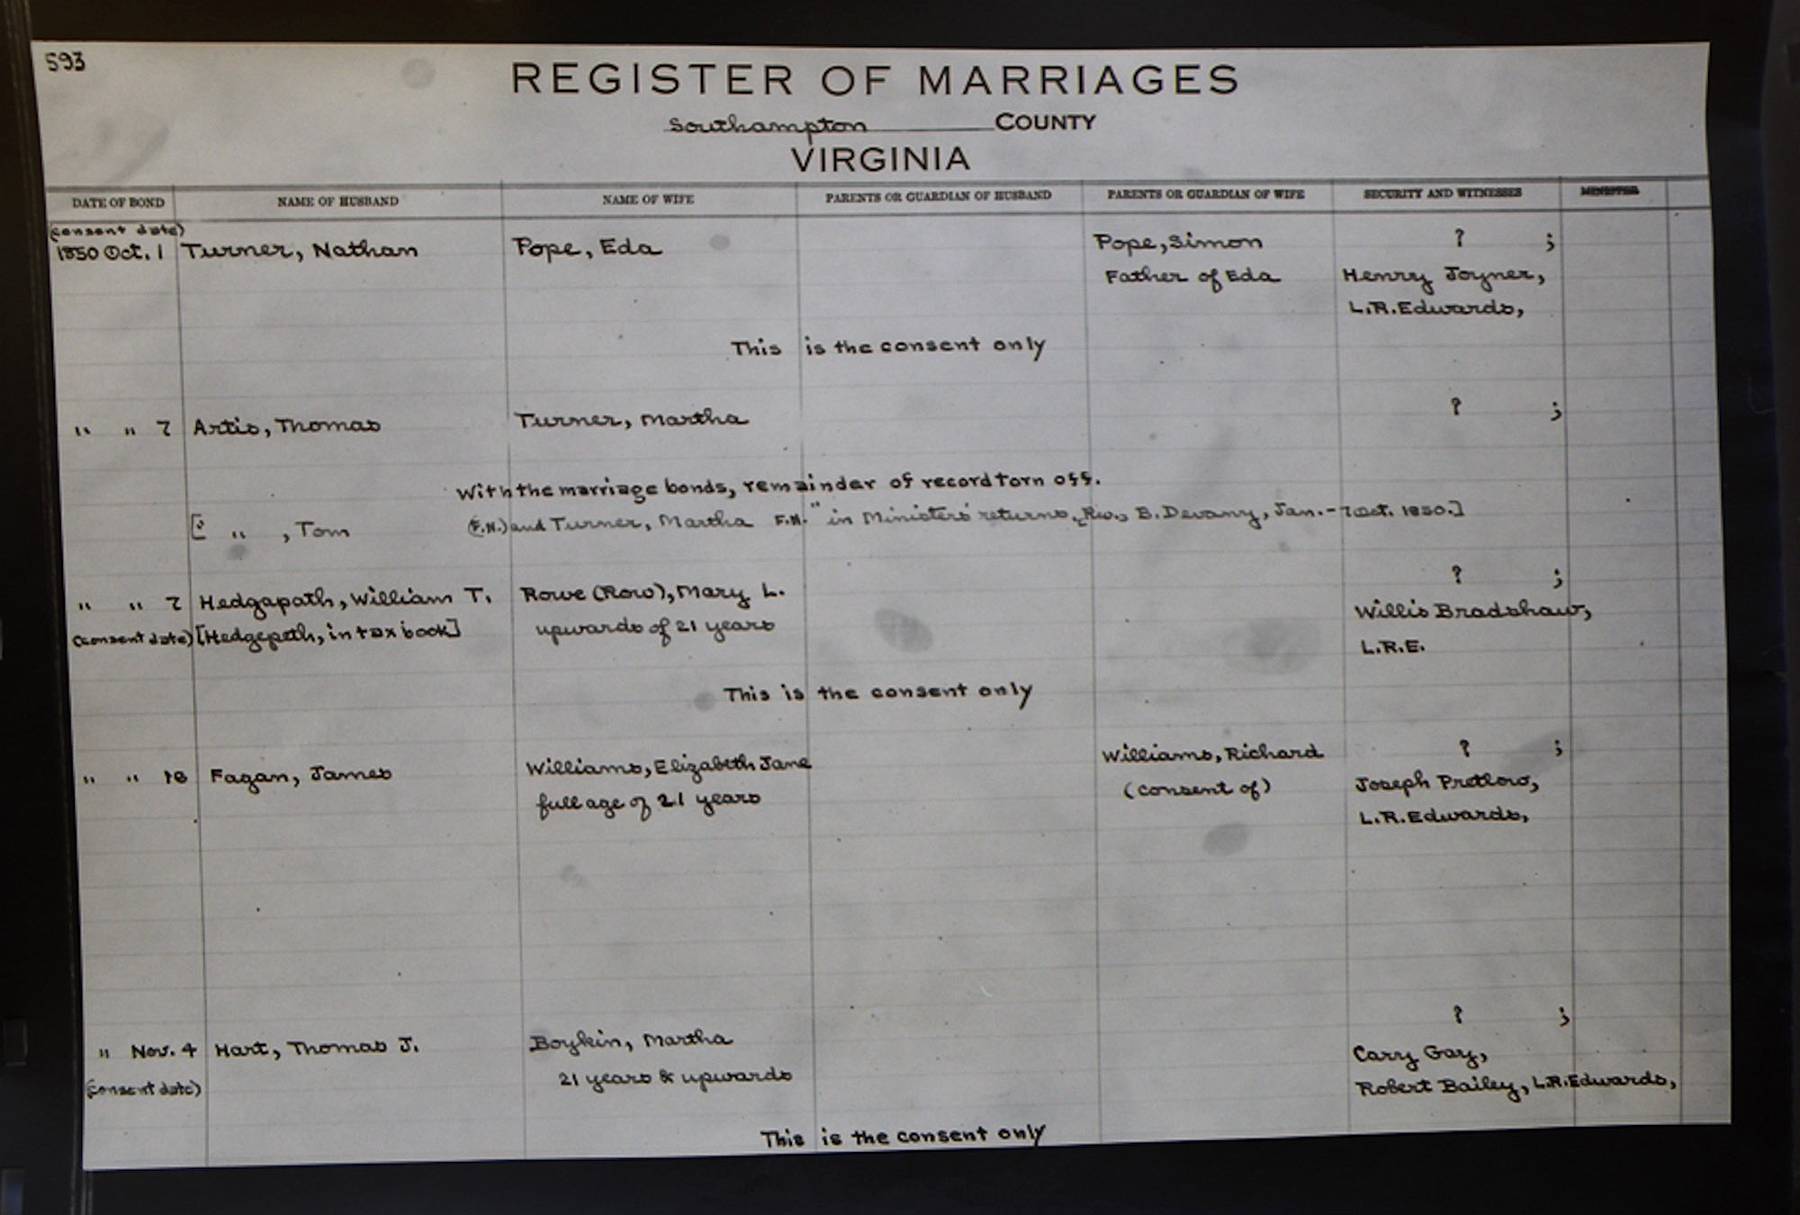 593
REGISTER OF MARRIAGES
Southampton COUNTY
VIRGINIA
DATE OF BOND NAME OF HUSBAND NAME OF WIFE PARENTS OR GUARDIAN OF HUSBAND PARENTS OR GUARDIAN OF WIFE SECURITY AND WITNESSES MINISTER
(consent date)
1850 Oct. 1 Turner, Nathan Pope, Eda Pope, Simon ? ;
Father of Eda Henry Joyner,
L.R.Edwards,
This is the consent only
" " 7 Artis, Thomas Turner, Martha ? ;
With the marriage bonds, remainder of record torn off.
[? " , Tom (F.N.) and Turner, Martha F.N." in Ministers' returns, Rev. B. Devany, Jan.- 7 Oct. 1850.]
" " 7 Hedgapath, William T. Rowe (Row), Mary L. ? ;
(consent date) [Hedgepeth, in tax book] upwards of 21 years Willis Bradshaw,
L.R.E.
This is the consent only
" " 18 Fagan, James Williams, Elizabeth Jane Williams, Richard ? ;
full age of 21 years (consent of) Joseph Pretlow,
L.R.Edwards,
" Nov. 4 Hart, Thomas J. Boykin, Martha ? ;
(consent date) 21 years & upwards Cary Gay,
Robert Bailey, L.R.Edwards,
This is the consent only